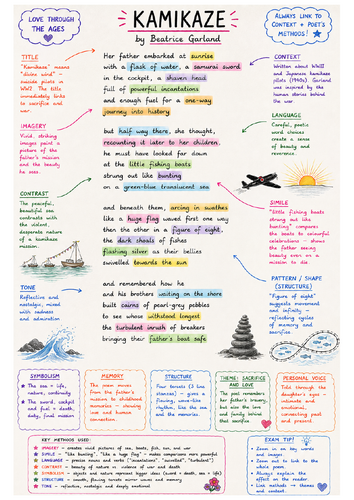 LOVE THROUGH
THE AGES
KAMIKAZE
by Beatrice Garland
ALWAYS LINK TO
CONTEXT + POET'S
METHODS!
Her father embarked at sunrise
with a flask of water, a samurai sword
in the cockpit, a shaven head
full of powerful incantations
and enough fuel for a one-way
journey into history
but half way there, she thought,
recounting it later to her children,
he must have looked far down
at the little fishing boats
strung out like bunting
on a green-blue translucent sea
and beneath them, arcing in swathes
like a huge flag waved first one way
then the other in a figure of eight,
the dark shoals of fishes
flashing silver as their bellies
swivelled towards the sun
and remembered how he
and his brothers waiting on the shore
built cairns of pearl-grey pebbles
to see whose withstood longest
the turbulent inrush of breakers
bringing their father's boat safe
TITLE
"Kamikaze" means
"divine wind" –
suicide pilots in
WWII. The title
immediately links
to sacrifice and
war.
IMAGERY
Vivid, striking
images paint a
picture of the
father's mission
and the beauty
he sees.
CONTRAST
The peaceful,
beautiful sea
contrasts with
the violent,
desperate nature
of a kamikaze
mission.
TONE
Reflective and
nostalgic, mixed
with sadness
and admiration
CONTEXT
Written about WWII
and Japanese kamikaze
pilots (1940s). Garland
was inspired by the
human stories behind
the war
LANGUAGE
Careful, poetic
word choices
create a sense
of beauty and
reverence.
SIMILE
"little fishing boats
strung out like
bunting" compares
the boats to colourful
celebrations – shows
the father seeing
beauty even on a
mission to die.
PATTERN / SHAPE
(STRUCTURE)
"Figure of eight"
suggests movement
and infinity –
reflecting cycles
of memory and
sacrifice.
SYMBOLISM
The sea = life,
nature, continuity
The sword, cockpit
and fuel = death,
duty, final mission
MEMORY
The poem moves
from the father's
mission to childhood
memories – showing
love and human
connection.
STRUCTURE
Four tercets (3 line
stanzas) – gives a
flowing, wave-like
rhythm, like the sea
and the memories.
THEME: SACRIFICE
AND LOVE
The poet remembers
her father's bravery,
but also the love
and family behind
that sacrifice
PERSONAL VOICE
Told through the
daughter's eyes –
intimate and
emotional,
connecting past and
present.
KEY METHODS USED:
IMAGERY – creates vivid pictures of sea, boats, fish, sun, and war
SIMILE – "like bunting", "like a huge flag" – makes comparisons more powerful
LANGUAGE – precise nouns and verbs ("incantations", "swivelled", "turbulent")
CONTRAST – beauty of nature vs. violence of war and death
SYMBOLISM – objects and nature represent bigger ideas (sword = death, sea = life)
STRUCTURE – smooth, flowing tercets mirror waves and memory
TONE – reflective, nostalgic and deeply emotional
EXAM TIP!
Zoom in on key words
and images
Zoom out to link to
the whole poem
Always explain the
effect on the reader
Link methods → themes
→ context